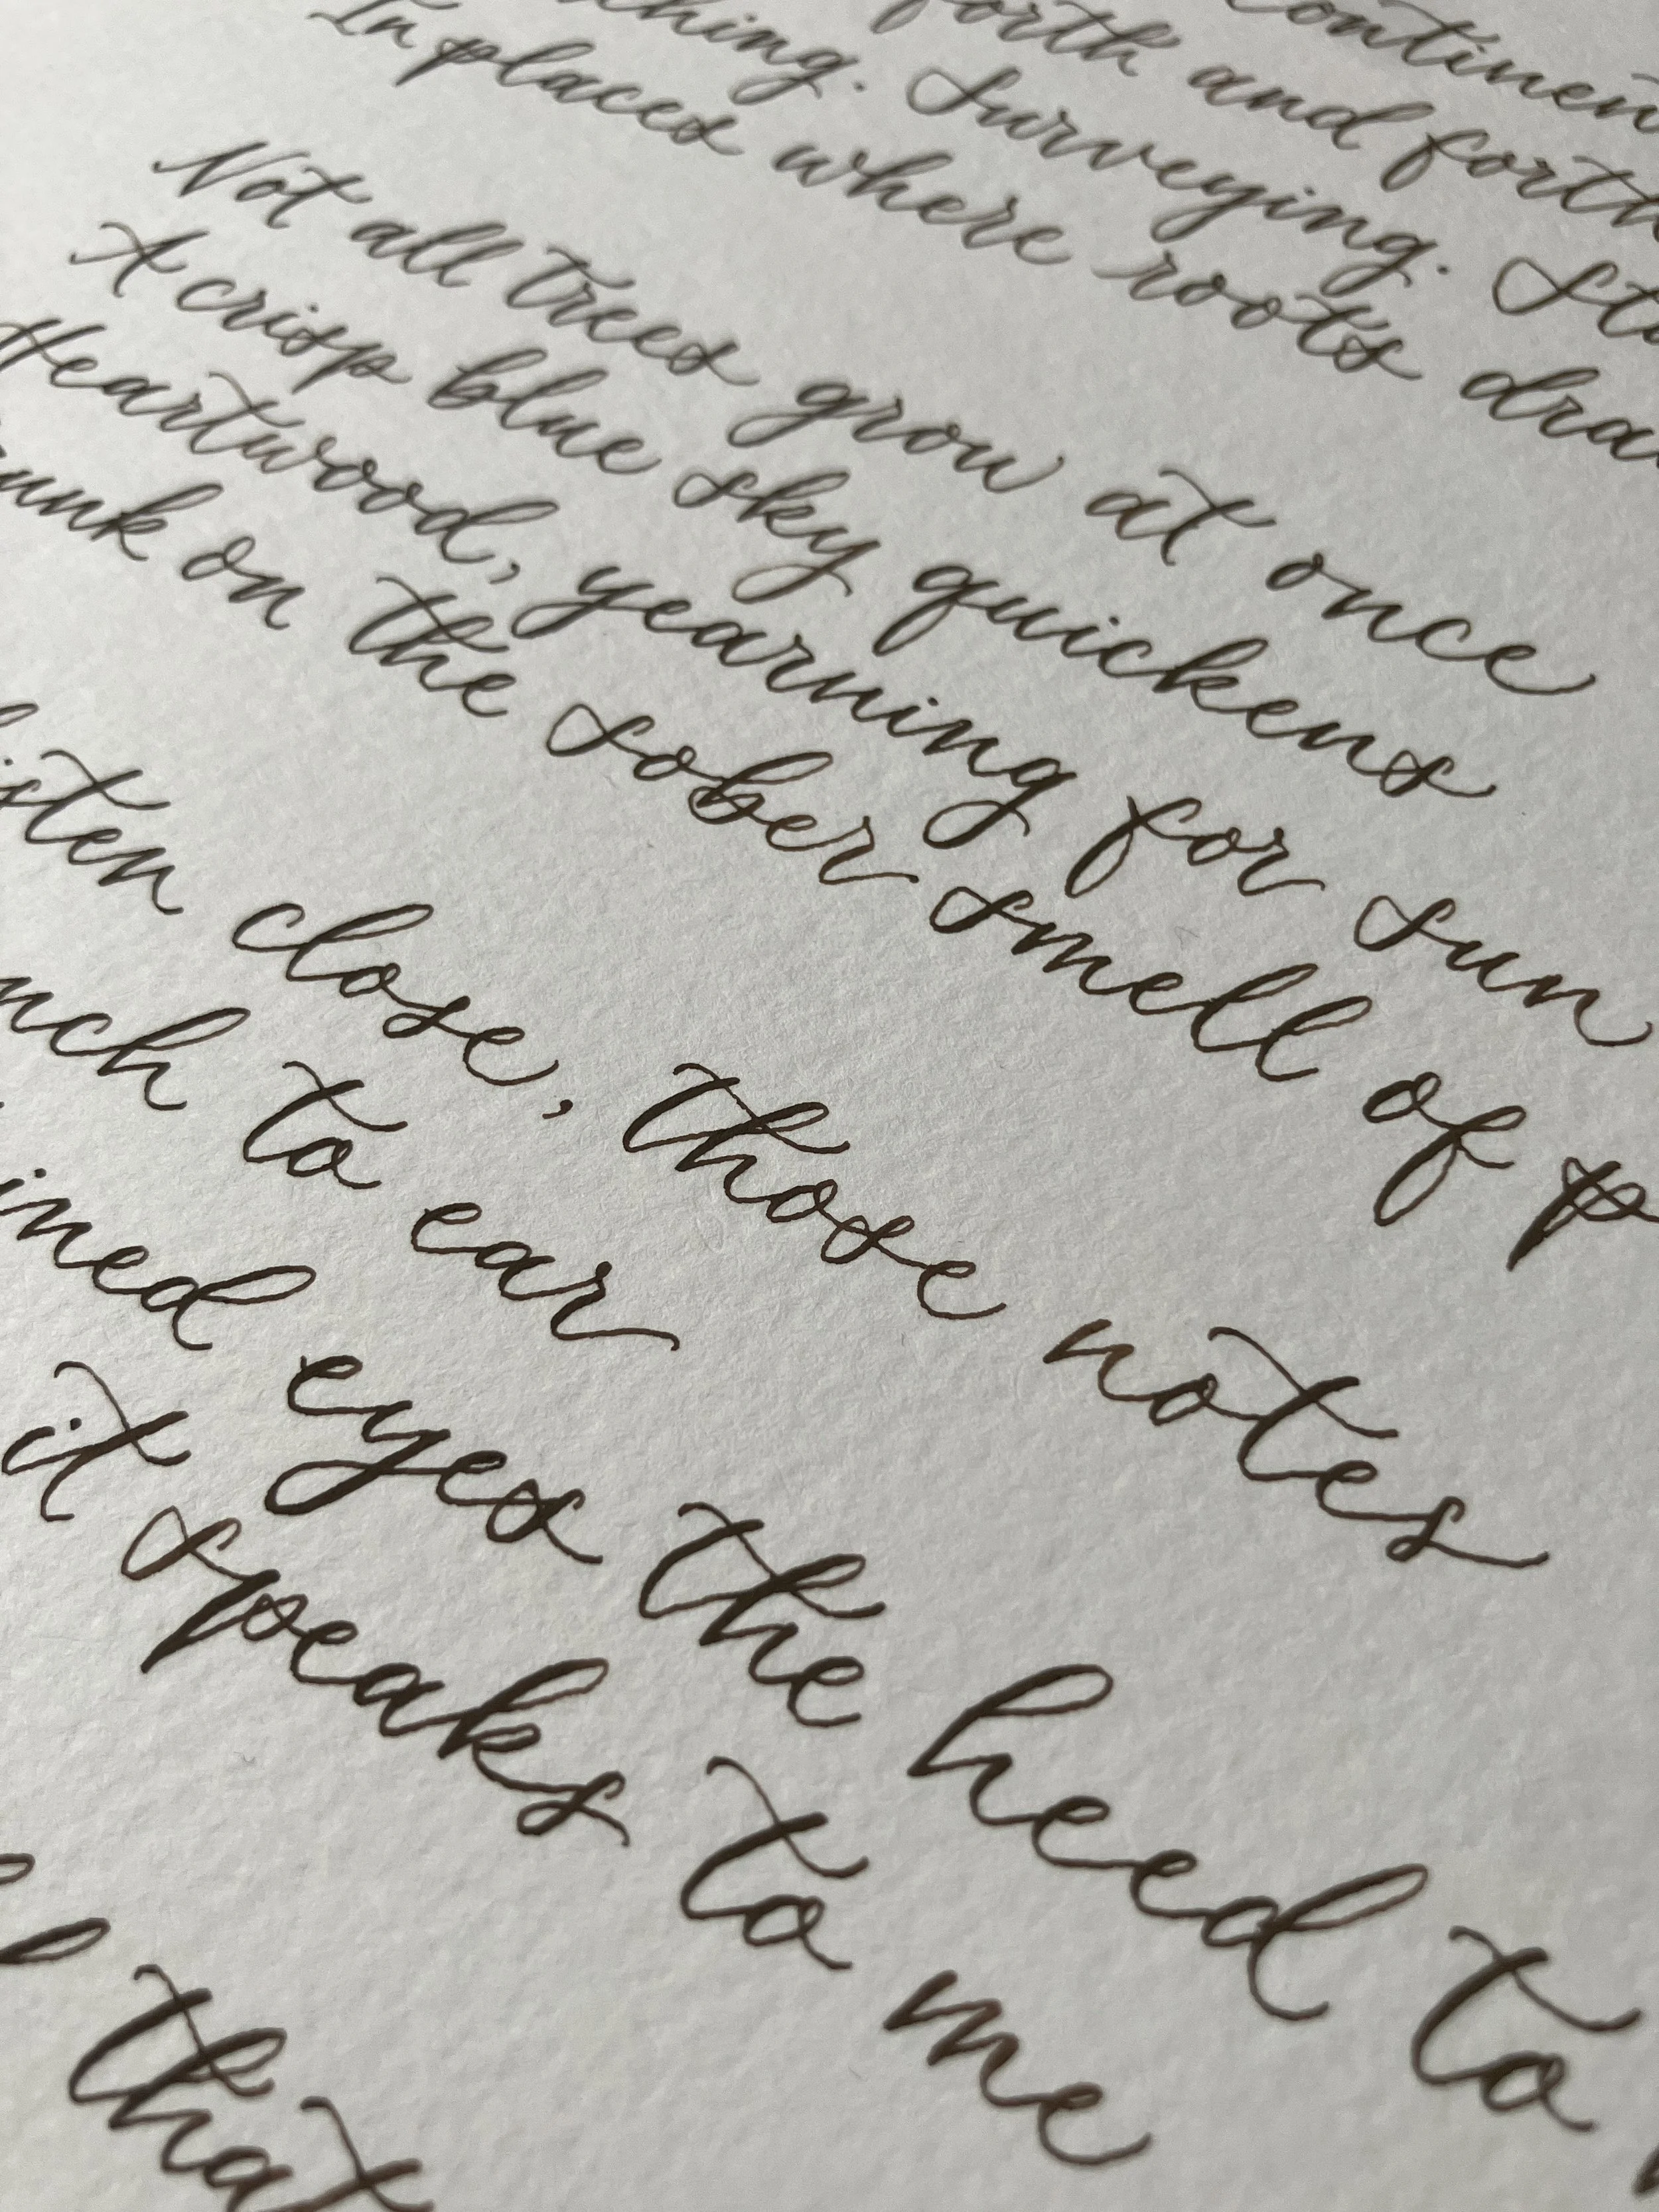 continen
forth and forth
hing. Surveying. St
In places where roots dra
Not all trees grow at once
A crisp blue sky quickens
Heartwood, yearning for sun
unk on the sober smell of p
isten close, those notes
nch to ear
ined eyes the heed to
it speaks to me
that